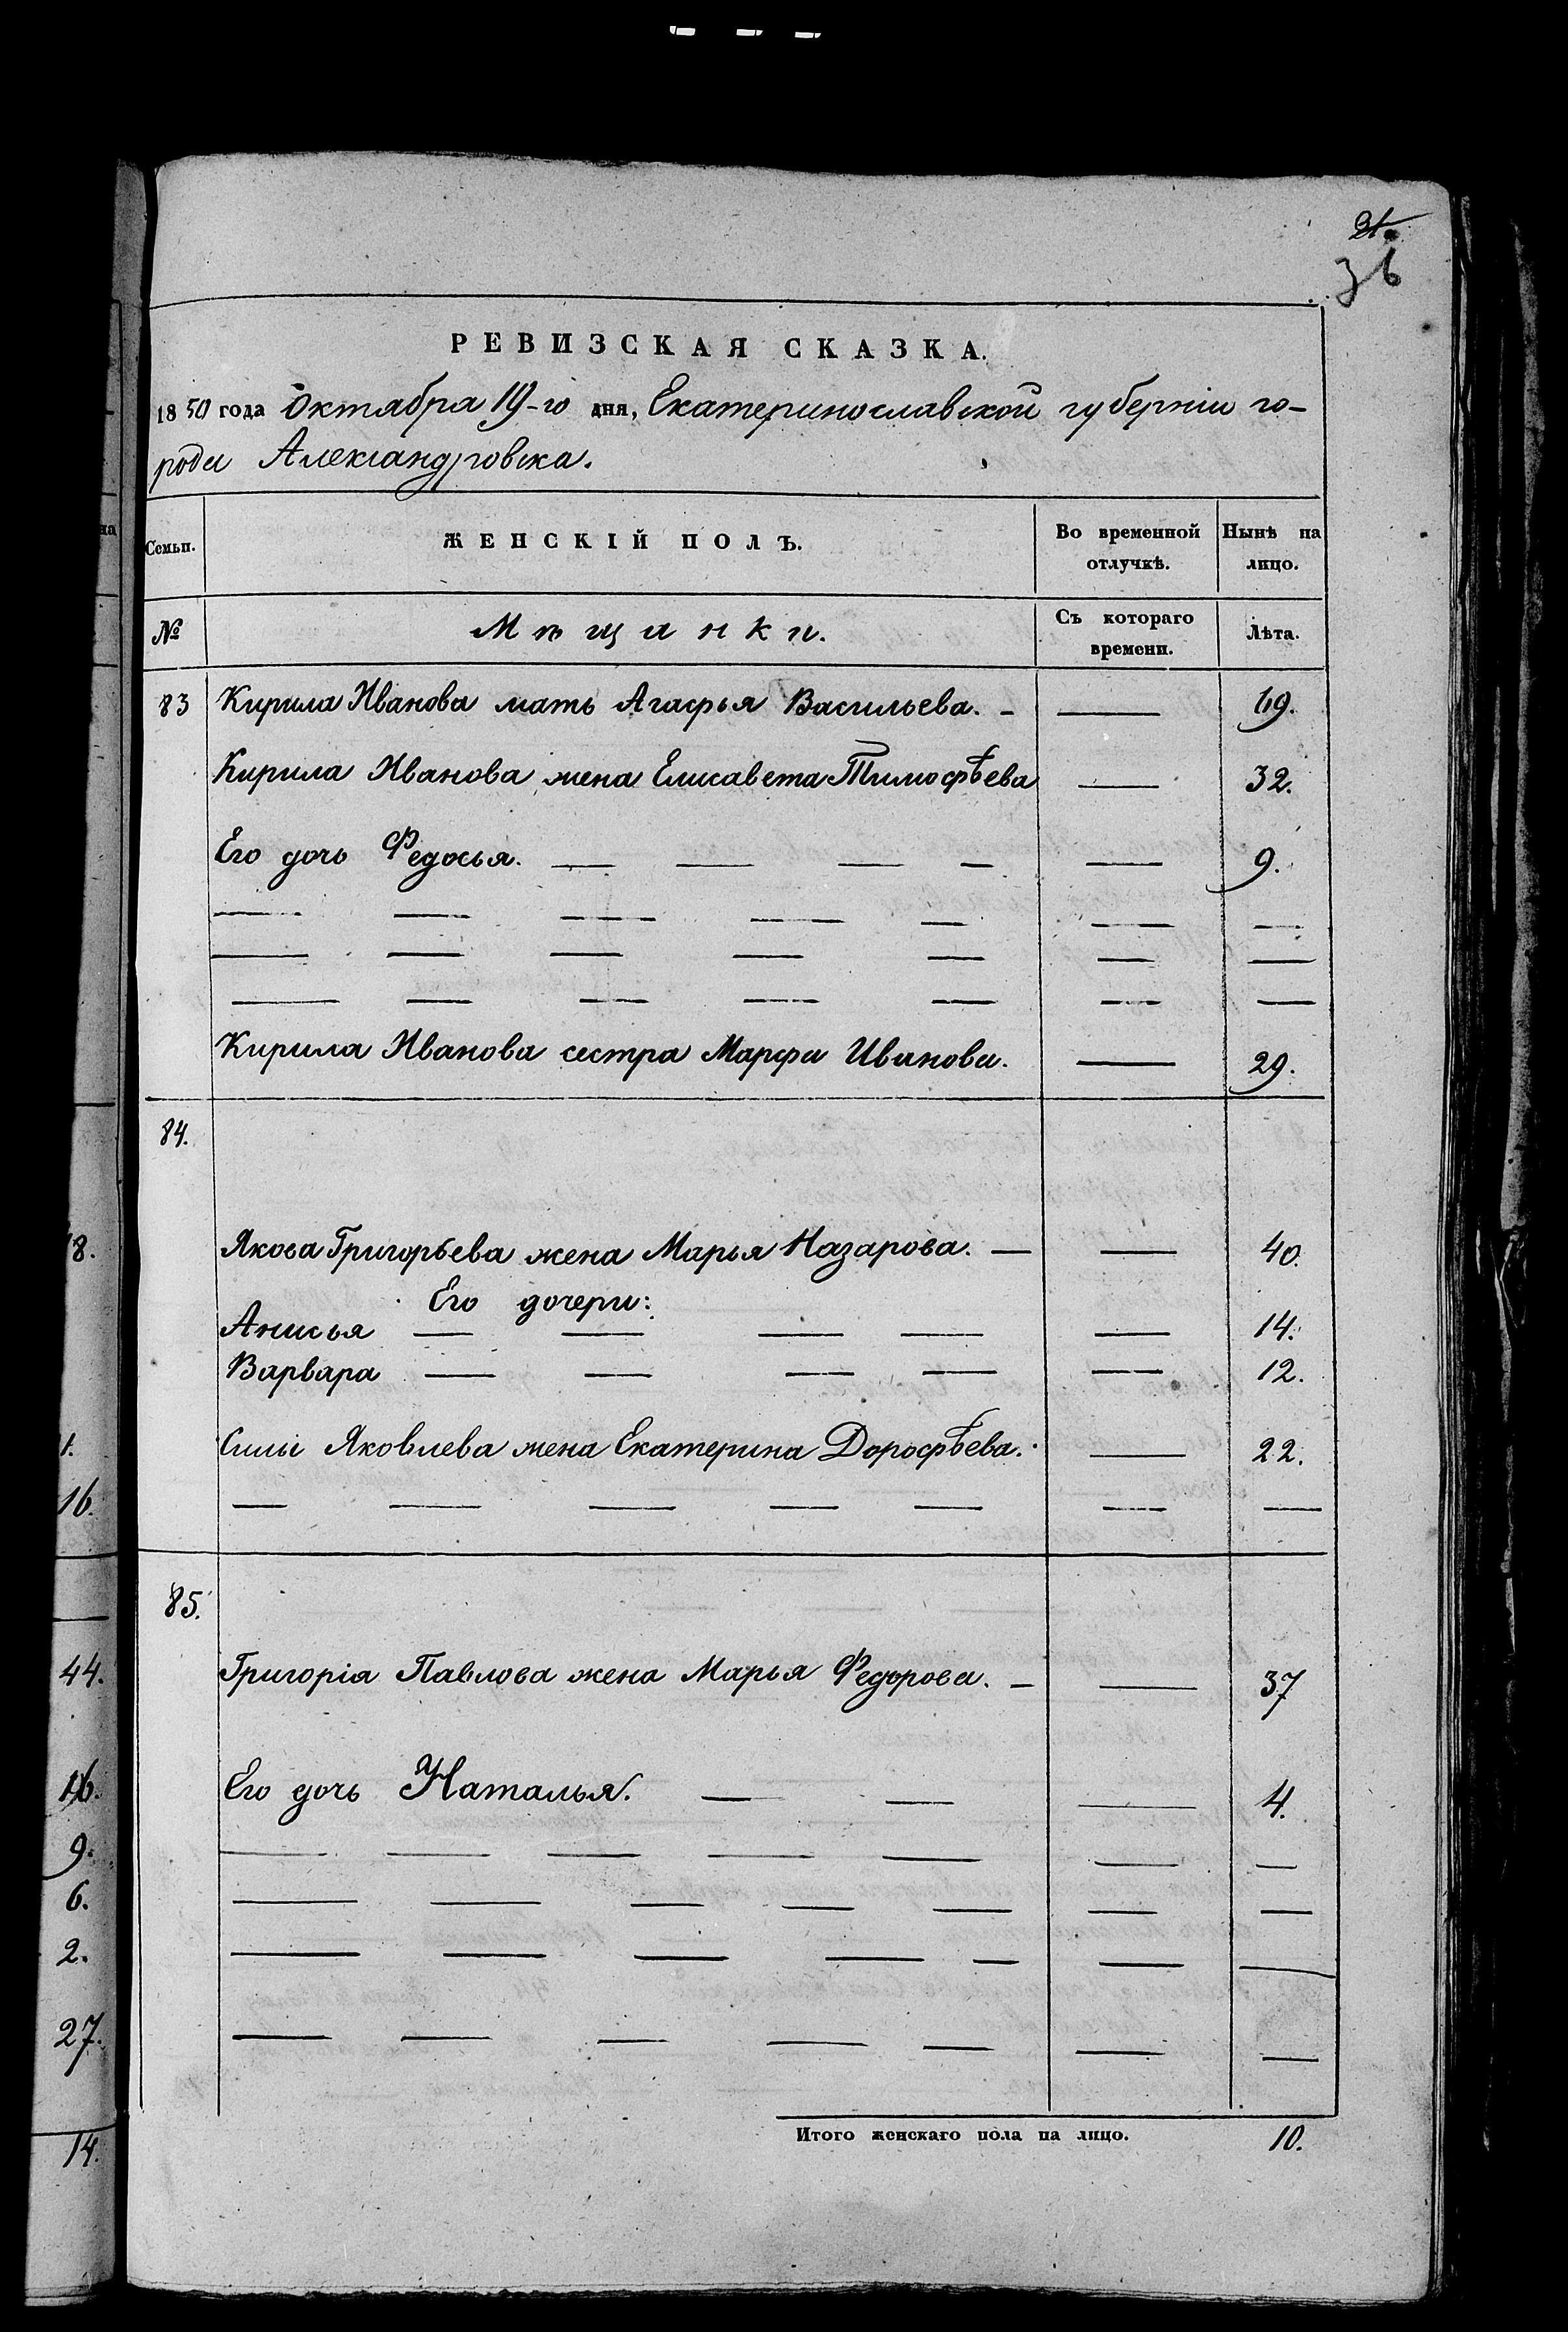 31.
36
РЕВИЗСКАЯ СКАЗКА.
1850 года Октября 19-го дня, Екатеринославской губерніи го-
рода Александровска.
на
Семьи.
ЖЕНСКІЙ ПОЛЪ.
Во временной отлучкѣ.
Нынѣ на лицо.
№
Мѣщанки.
Съ котораго времени.
Лѣта.
83 Кирила Иванова мать Агафья Васильева. — — 69.
Кирила Иванова жена Елисавета Тимофѣева — 32.
Его дочь Федосья. — — — — — 9.
— — — — — — —
— — — — — — —
— — — — — — —
Кирила Иванова сестра Марфа Иванова. — 29.
84.
18.
Якова Григорьева жена Марья Назарова. — — 40.
Его дочери:
Анисья — — — — — 14.
Варвара — — — — — 12.
1.
Силы Яковлева жена Екатерина Дорофѣева. — 22.
16.
— — — — — — —
85.
44.
Григорія Павлова жена Марья Федорова. — — 37
16.
Его дочь Наталья. — — — 4.
9.
— — — — — — —
6.
— — — — — — —
2.
— — — — — — —
27.
— — — — — — —
14.
Итого женскаго пола на лицо. 10.